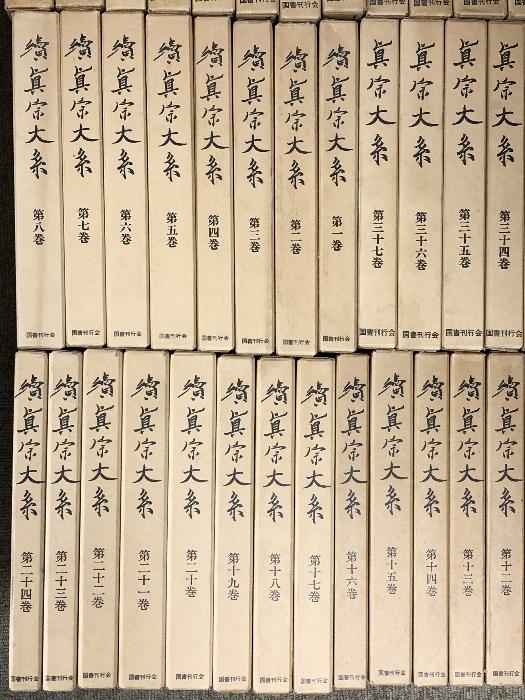 国書刊行会
国書刊行会
国書刊行会
国書刊行会
眞宗大系 第三十四巻 国書刊行会
眞宗大系 第三十五巻 国書刊行会
眞宗大系 第三十六巻 国書刊行会
眞宗大系 第三十七巻 国書刊行会
續眞宗大系 第一巻 国書刊行会
續眞宗大系 第二巻 国書刊行会
續眞宗大系 第三巻 国書刊行会
續眞宗大系 第四巻 国書刊行会
續眞宗大系 第五巻 国書刊行会
續眞宗大系 第六巻 国書刊行会
續眞宗大系 第七巻 国書刊行会
續眞宗大系 第八巻 国書刊行会
續眞宗大系 第十二巻 国書刊行会
續眞宗大系 第十三巻 国書刊行会
續眞宗大系 第十四巻 国書刊行会
續眞宗大系 第十五巻 国書刊行会
續眞宗大系 第十六巻 国書刊行会
續眞宗大系 第十七巻 国書刊行会
續眞宗大系 第十八巻 国書刊行会
續眞宗大系 第十九巻 国書刊行会
續眞宗大系 第二十巻 国書刊行会
續眞宗大系 第二十一巻 国書刊行会
續眞宗大系 第二十二巻 国書刊行会
續眞宗大系 第二十三巻 国書刊行会
續眞宗大系 第二十四巻 国書刊行会